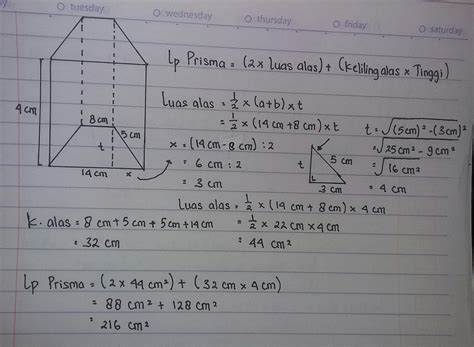 ay
tuesday
wednesday
thursday
friday
saturday
4 cm
8 cm
5 cm
t
14 cm
x
Lp Prisma = (2 x luas alas) + (keliling alas x Tinggi)
Luas alas = 1/2 x (a+b) x t
= 1/2 x (14 cm + 8 cm) x t
x = (14 cm - 8 cm) : 2
= 6 cm : 2
= 3 cm
t
5 cm
3 cm
t = √(5cm)² - (3cm)²
= √25 cm² - 9 cm²
= √16 cm²
= 4 cm
Luas alas = 1/2 x (14 cm + 8 cm) x 4 cm
= 1/2 x 22 cm x 4 cm
= 44 cm²
K. alas = 8 cm + 5 cm + 5 cm + 14 cm
= 32 cm
Lp Prisma = (2 x 44 cm²) + (32 cm x 4 cm)
= 88 cm² + 128 cm²
= 216 cm²